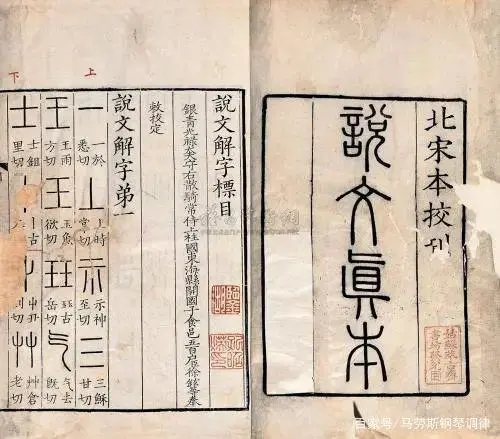 北宋本挍刊
說文眞本
說文解字標目
銀青光祿大夫守右散騎常侍上柱國東海縣開國子食邑五百戶臣徐鉉等奉
敕挍定
說文解字弟一
上
一 一於悉切 丄 上時掌切 示 示神至切 三 三穌甘切
王 王雨方切 玉 玉魚欲切 玨 玨古岳切 气 气去旣切
下
士 士鉏里切 丨 丨古 屮 屮丑列切 艸 艸倉老切
百家号/马劳斯钢琴调律